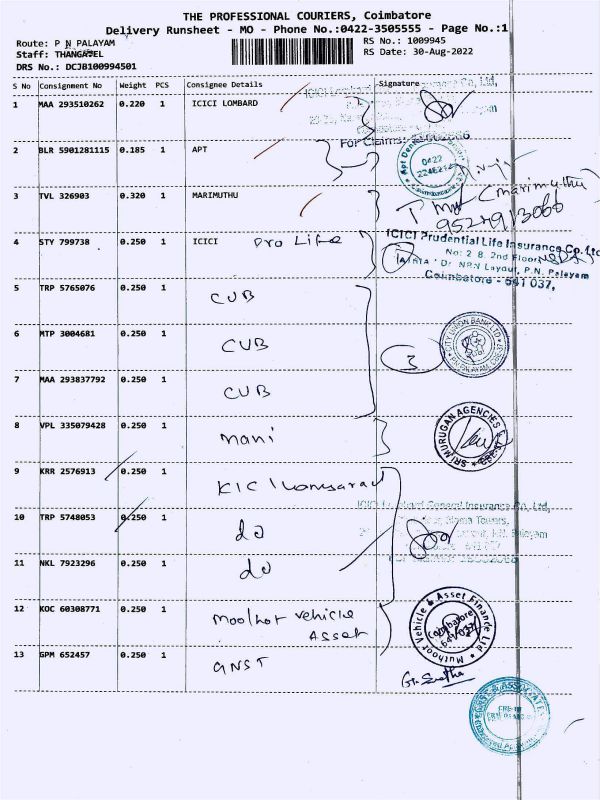 THE PROFESSIONAL COURIERS, Coimbatore
Delivery Runsheet - MO - Phone No.:0422-3505555 - Page No.:1
Route: P N PALAYAM
Staff: THANGAVEL
DRS No.: DCJB100994501
RS No.: 1009945
RS Date: 30-Aug-2022
S No Consignment No Weight PCS Consignee Details Signature
1 MAA 293510262 0.220 1 ICICI LOMBARD
For Claims:
2 BLR 5901281115 0.185 1 APT
0422
3 TVL 326903 0.320 1 MARIMUTHU
(marimuthu)
4 STY 799738 0.250 1 ICICI Pro Life
ICICI Prudential Life Insurance Co. Ltd
No: 2 B, 2nd Floor
Dr. NRN Layout, P.N. Palayam
Coimbatore - 641 037,
5 TRP 5765076 0.250 1 CUB
6 MTP 3004681 0.250 1 CUB
3
CITY UNION BANK LTD
7 MAA 293837792 0.250 1 CUB
8 VPL 335079428 0.250 1 mani
SRI MURUGAN AGENCIES
9 KRR 2576913 0.250 1
General Insurance Co. Ltd,
10 TRP 5748053 0.250 1 do
11 NKL 7923296 0.250 1 do
12 KOC 60308771 0.250 1 Moothot vehicle
Asset
Muthoot Vehicle & Asset Finance Ltd
Coimbatore
641 037
13 GPM 652457 0.250 1 GNST